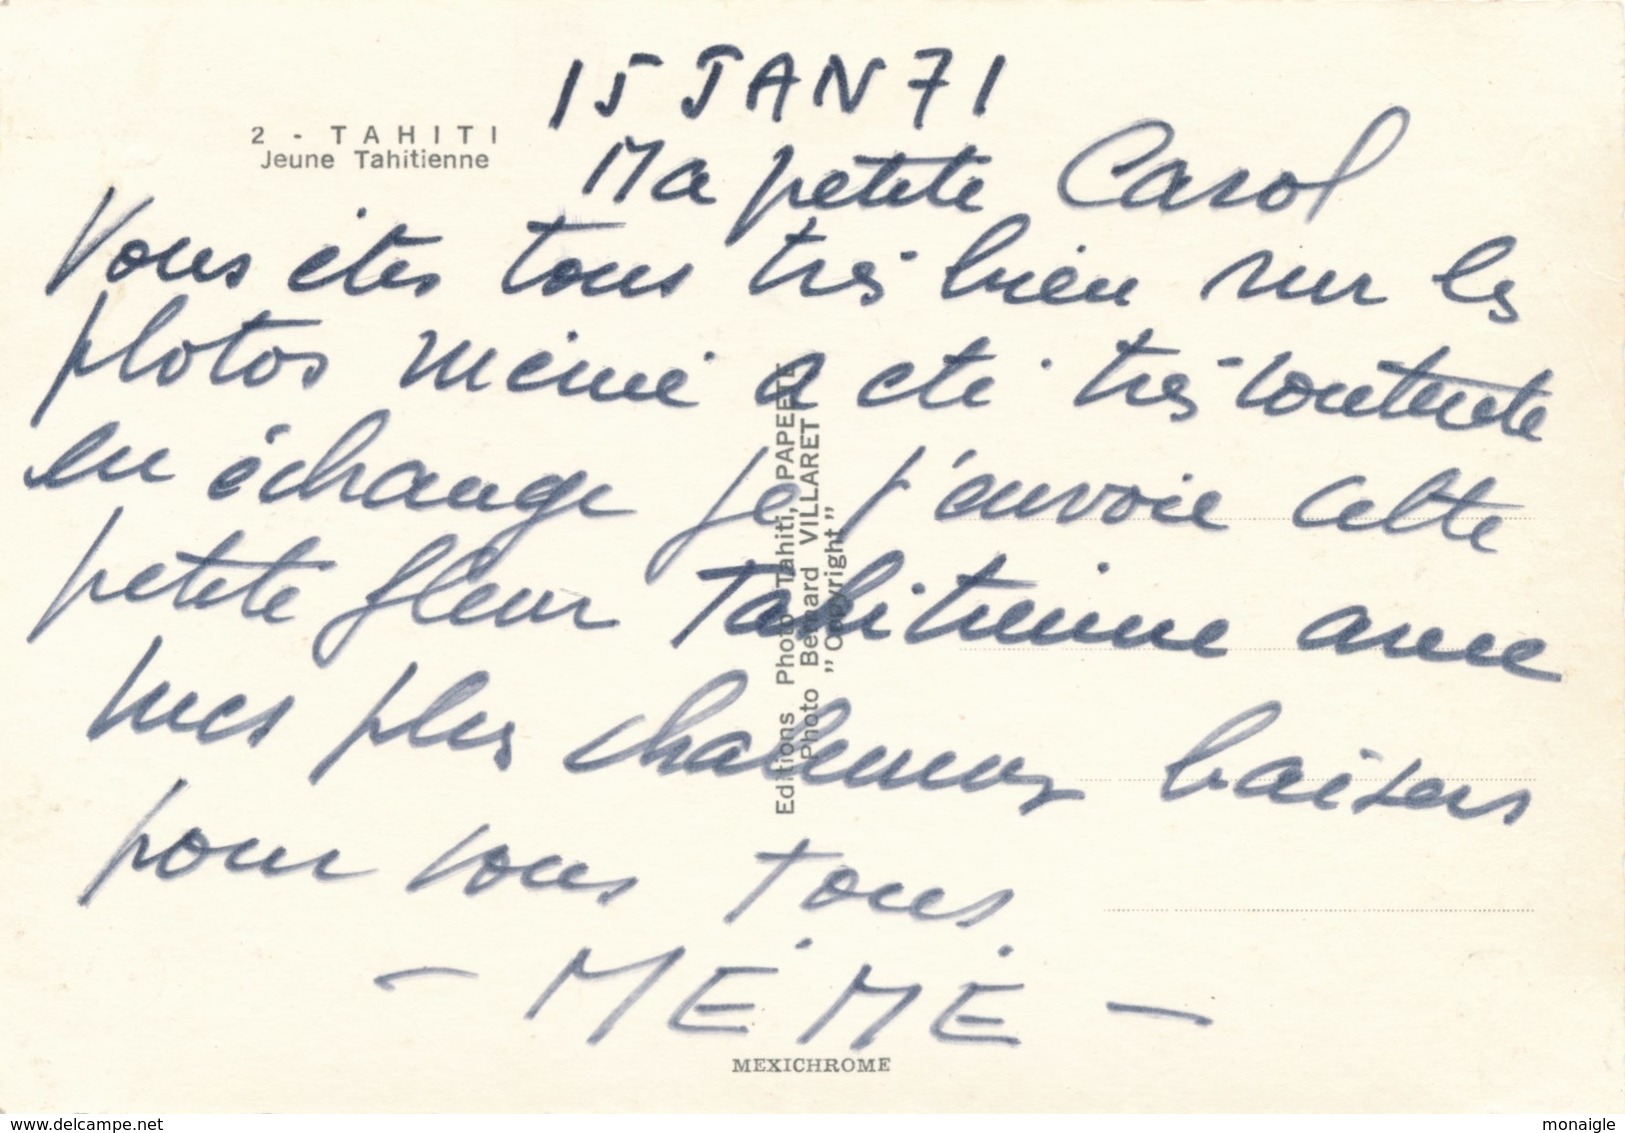 15 JAN 71
2 - TAHITI
Jeune Tahitienne
Ma petite Carol
Vous êtes tous très bien sur les
photos mémé a été très contente
en échange je t'envoie cette
petite fleur Tahitienne avec
mes plus chaleureux baisers
pour vous tous.
- MÉMÉ -
Editions Photo Tahiti, PAPEETE
Photo Bernard VILLARET
"Copyright"
MEXICHROME
delcampe.net
monaigle